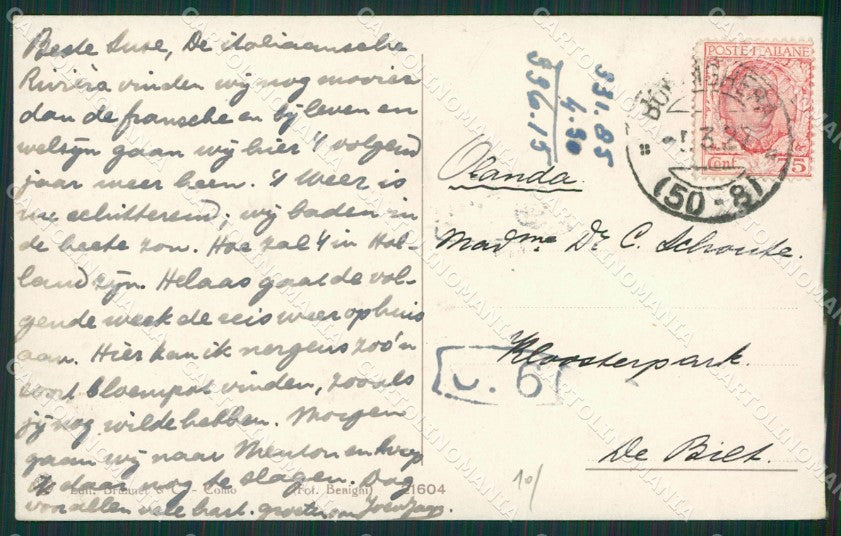 Beste Suse, De italiaansche
Riviera vinden wij nog mooier
dan de fransche en bij leven en
welzijn gaan wij hier 't volgend
jaar weer heen. 't Weer is
nu schitterend; wij baden in
de heete zon. Hoe zal 't in Hol-
land zijn. Helaas gaat de vol-
gende week de reis weer op huis
aan. Hier kan ik nergens zoo'n
soort bloempot vinden, zooals
jij nog wilde hebben. Morgen
gaan wij naar Menton en hoop
ik daar nog te slagen. Dag
van allen vele hart. groeten van
Edit. Brunner & C. - Como (Fot. Benighi) 21604
331.85
4.30
336.15
POSTE·ITALIANE
Cent. 75
BORDIGHERA
(50-8)
Olanda.
Madme Dr. C. Schoute.
Kloosterpark.
De Bilt.
v. 6
10/
CARTOLINOMANIA